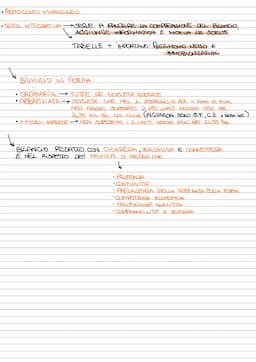 • RENDICONTO FINANZIARIO
• NOTA INTEGRATIVA → SERVE A FACILITARE LA COMPRENSIONE DEL BILANCIO,
AGGIUNGE INFORMAZIONI E MOTIVA LE SCELTE
TABELLE + IMPORTANTI: PATRIMONIO NETTO E
IMMOBILIZZAZIONI
BILANCIO IN FORMA:
• ORDINARIA → TUTTE LE SOCIETÀ QUOTATE
• ABBREVIATA → SOCIETÀ CHE NEL
NON HANNO SUPERATO 2 DEI LIMITI
2435 BIS DEL COD. CIVILE
• MICRO-IMPRESE → NON SUPERATI I 2 LIMITI
BILANCIO REDATTO CON CHIAREZZA, VERIDICITÀ E CORRETTEZZA
E NEL RISPETTO DEI PRINCIPI DI REDAZIONE:
• PRUDENZA
• CONTINUITÀ
• PREVALENZA DELLA SOSTANZA SULLA FORMA
• COMPETENZA ECONOMICA
• VALUTAZIONE
• COMPARABILITÀ